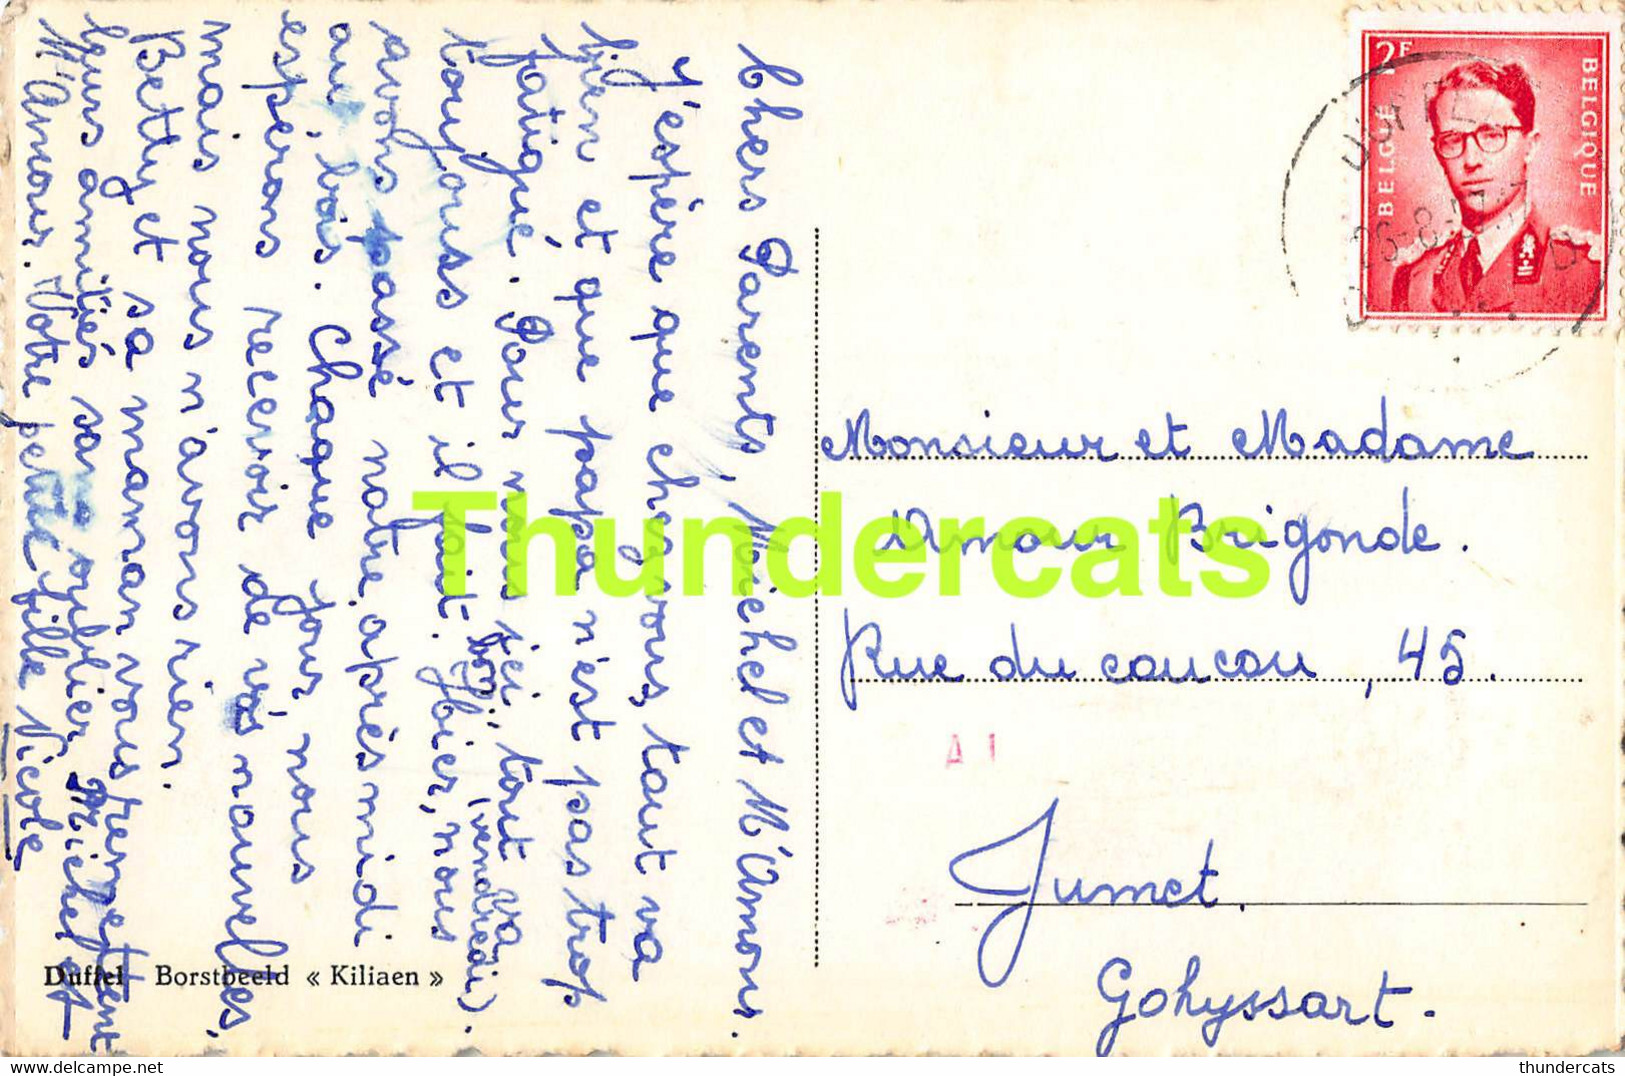 Chers Parents, Michel et M'Amour.
J'espère que chez vous, tout va
bien et que papa n'est pas trop
fatigué. Pour nous ici, tout va
toujours et il fait bon. Hier, (vendredi), nous
avons passé notre après midi
au bois. Chaque jour nous
espérons recevoir de vos nouvelles,
mais nous n'avons rien.
Betty et sa maman vous remettent
leurs amitiés sans oublier Michel et
M'Amour. Votre petite fille Nicole
Duffel Borstbeeld « Kiliaen »
2F
BELGIE BELGIQUE
DUFFEL
26-8-
Monsieur et Madame
Amour Brigonde.
Rue du coucou, 45.
A 1
Jumet.
Gohyssart.
Thundercats
thundercats - www.delcampe.net